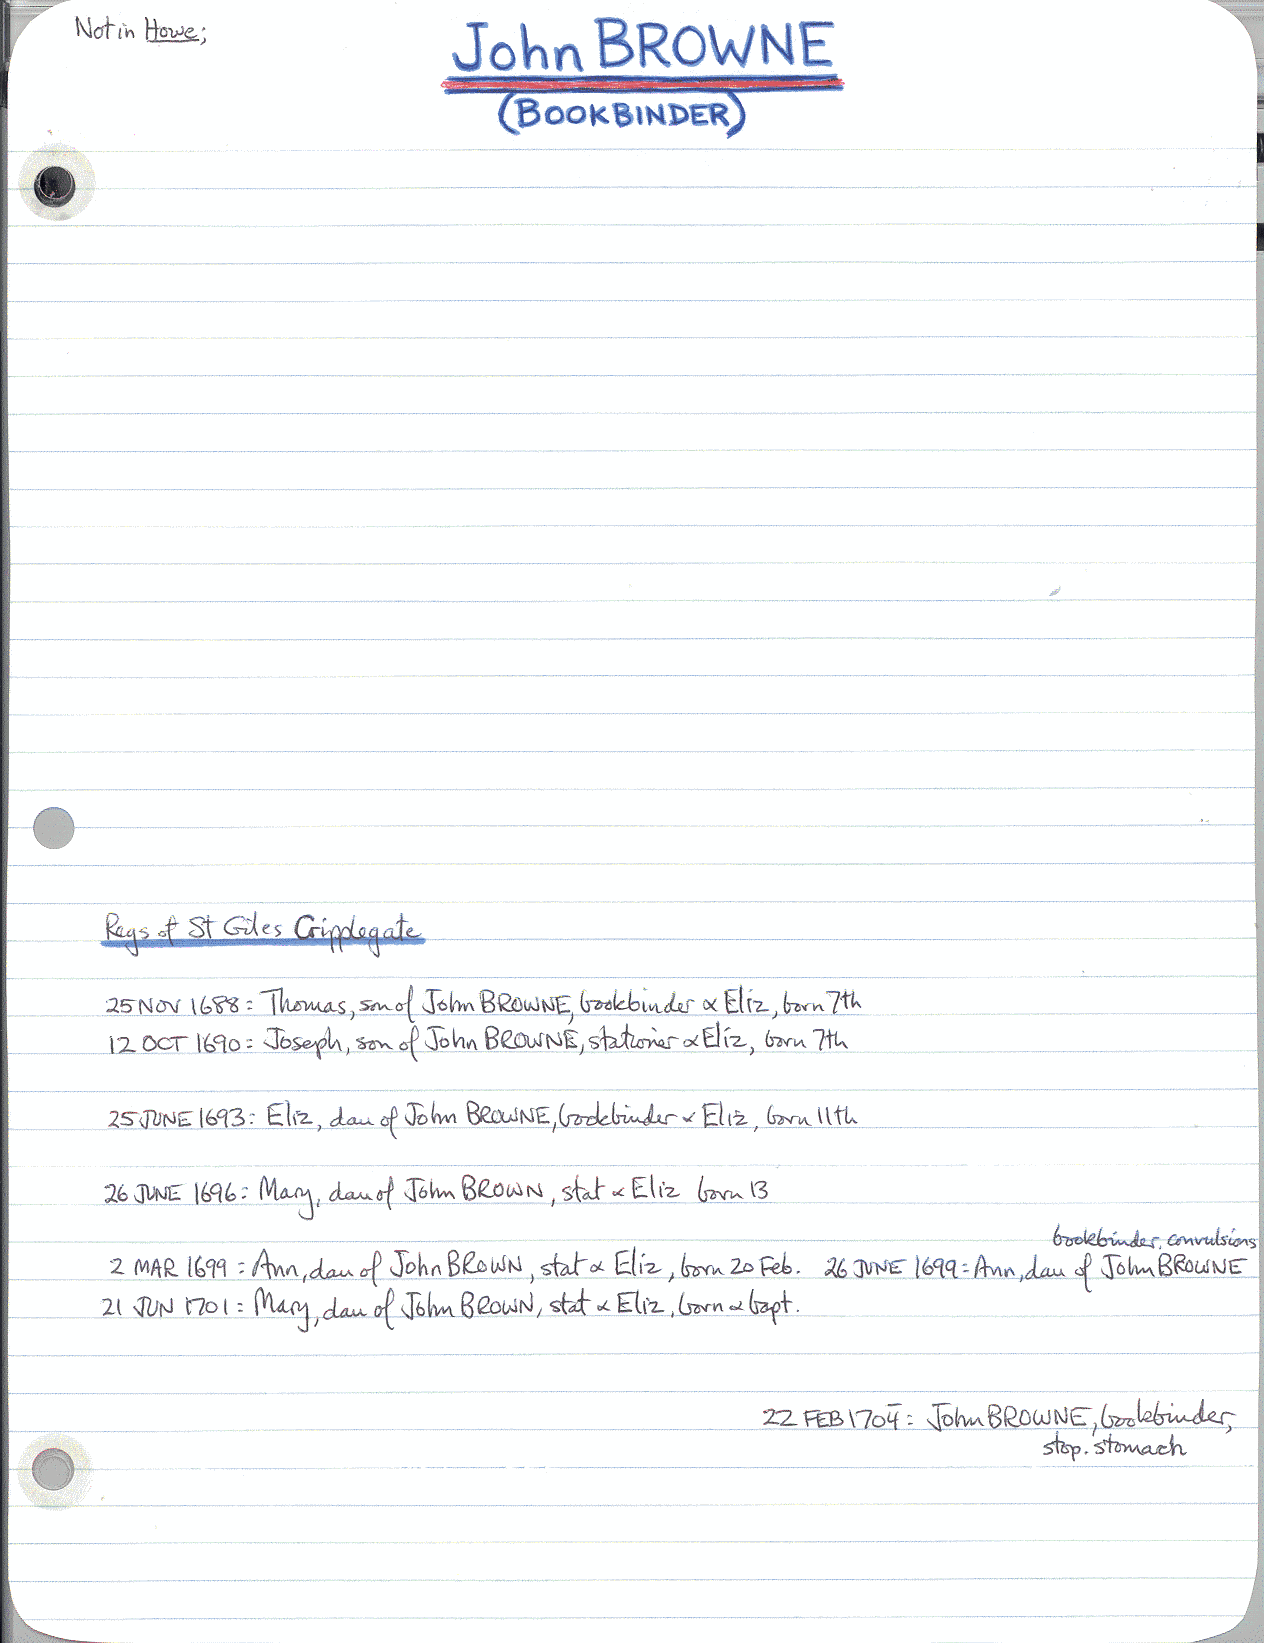 Not in Howe;
John BROWNE
(BOOKBINDER)
Regs of St Giles Cripplegate
25 NOV 1688: Thomas, son of John BROWNE, bookbinder & Eliz, born 7th
12 OCT 1690: Joseph, son of John BROWNE, stationer & Eliz, born 7th
25 JUNE 1693: Eliz, dau of John BROWNE, bookbinder & Eliz, born 11th
26 JUNE 1696: Mary, dau of John BROWN, stat & Eliz born 13
bookbinder, convulsions
2 MAR 1699: Ann, dau of John BROWN, stat & Eliz, born 20 Feb. 26 JUNE 1699: Ann, dau of John BROWNE
21 JUN 1701: Mary, dau of John BROWN, stat & Eliz, born & bapt.
22 FEB 1704: John BROWNE, bookbinder,
stop. stomach